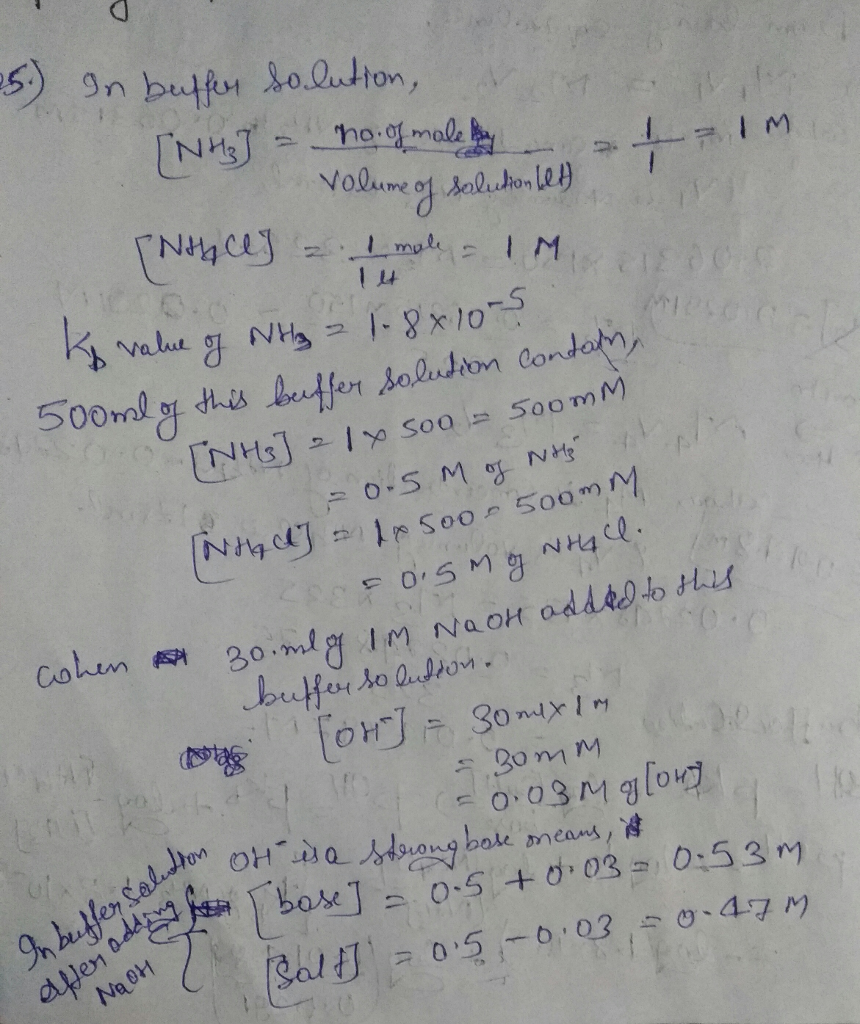 5.) In buffer solution,
[NH3] = no. of mole / volume of solution (lt) = 1/1 = 1 M
[NH4Cl] = 1 mole / 1 lt = 1 M
Kb value of NH3 = 1.8 × 10^-5
500ml of this buffer solution contain,
[NH3] = 1 × 500 = 500 mM
= 0.5 M of NH3
[NH4Cl] = 1 × 500 = 500 mM
= 0.5 M of NH4Cl.
when 30 ml of 1M NaOH added to this
buffer solution.
[OH-] = 30 ml × 1 M
= 30 m M
= 0.03 M of [OH-]
OH- is a strong base means,
In buffer solution
after adding
NaOH
[base] = 0.5 + 0.03 = 0.53 M
[Salt] = 0.5 - 0.03 = 0.47 M